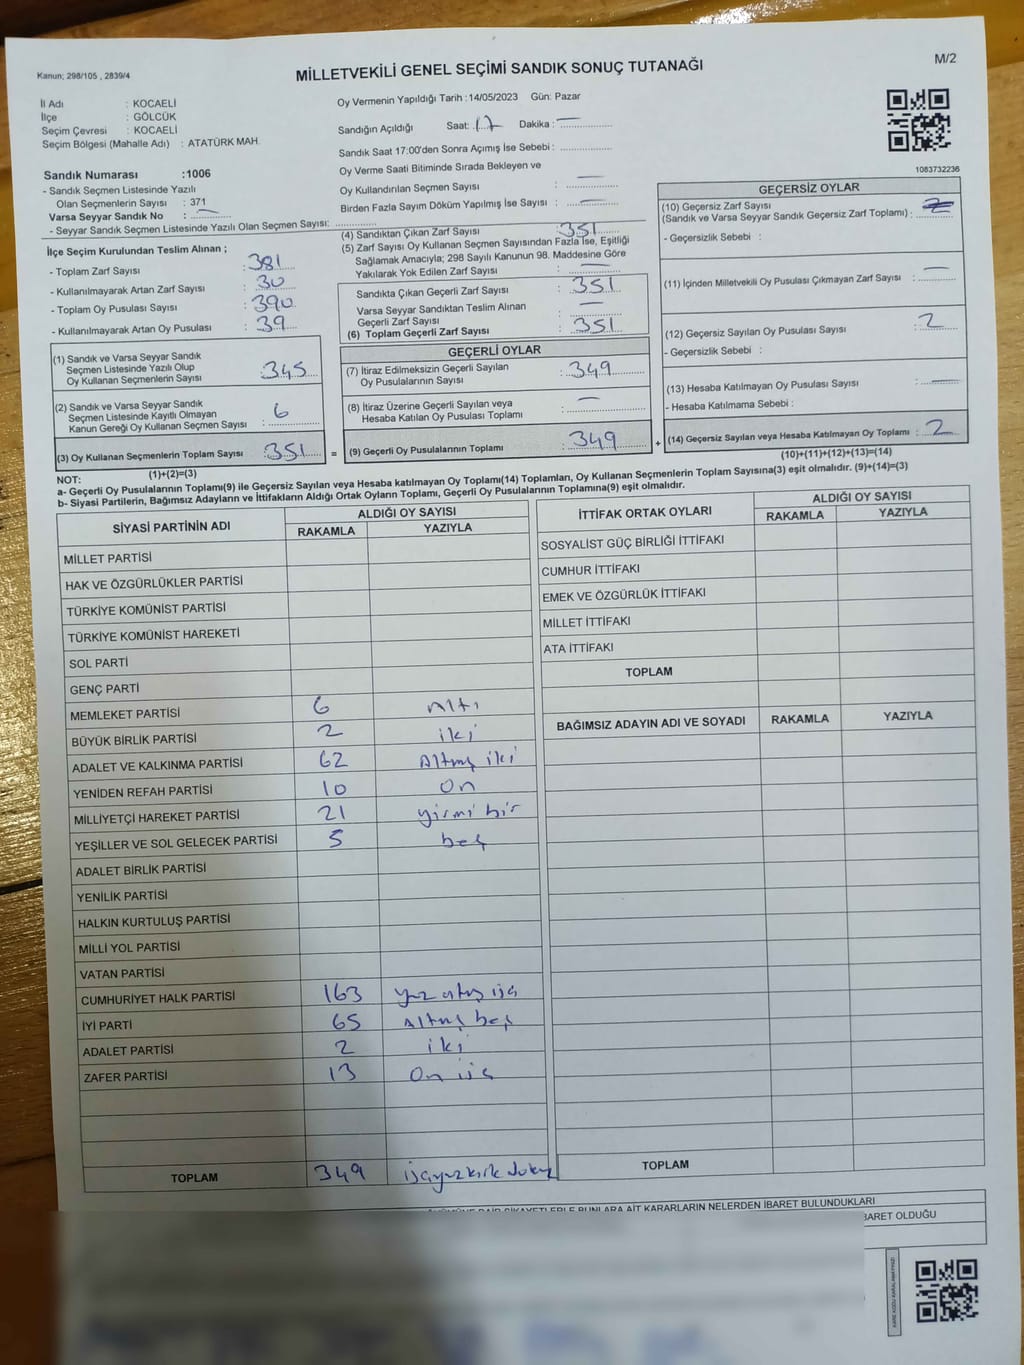 Kanun; 298/105 , 2839/4
MİLLETVEKİLİ GENEL SEÇİMİ SANDIK SONUÇ TUTANAĞI
M/2
İl Adı : KOCAELİ
İlçe : GÖLCÜK
Seçim Çevresi : KOCAELİ
Seçim Bölgesi (Mahalle Adı) : ATATÜRK MAH.
Sandık Numarası :1006
- Sandık Seçmen Listesinde Yazılı
Olan Seçmenlerin Sayısı : 371
Varsa Seyyar Sandık No :
- Seyyar Sandık Seçmen Listesinde Yazılı Olan Seçmen Sayısı:
Oy Vermenin Yapıldığı Tarih :14/05/2023 Gün: Pazar
Sandığın Açıldığı Saat: 17 Dakika : —
Sandık Saat 17:00'den Sonra Açımış İse Sebebi :
Oy Verme Saati Bitiminde Sırada Bekleyen ve
Oy Kullandırılan Seçmen Sayısı : —
Birden Fazla Sayım Döküm Yapılmış İse Sayısı : —
1083732236
İlçe Seçim Kurulundan Teslim Alınan ;
- Toplam Zarf Sayısı : 381
- Kullanılmayarak Artan Zarf Sayısı : 30
- Toplam Oy Pusulası Sayısı : 390
- Kullanılmayarak Artan Oy Pusulası : 39
(1) Sandık ve Varsa Seyyar Sandık
Seçmen Listesinde Yazılı Olup
Oy Kullanan Seçmenlerin Sayısı : 345
(2) Sandık ve Varsa Seyyar Sandık
Seçmen Listesinde Kayıtlı Olmayan
Kanun Gereği Oy Kullanan Seçmen Sayısı : 6
(3) Oy Kullanan Seçmenlerin Toplam Sayısı : 351
(1)+(2)=(3)
(4) Sandıktan Çıkan Zarf Sayısı : 351
(5) Zarf Sayısı Oy Kullanan Seçmen Sayısından Fazla İse, Eşitliği
Sağlamak Amacıyla; 298 Sayılı Kanunun 98. Maddesine Göre
Yakılarak Yok Edilen Zarf Sayısı : —
Sandıkta Çıkan Geçerli Zarf Sayısı : 351
Varsa Seyyar Sandıktan Teslim Alınan
Geçerli Zarf Sayısı : —
(6) Toplam Geçerli Zarf Sayısı : 351
GEÇERLİ OYLAR
(7) İtiraz Edilmeksizin Geçerli Sayılan
Oy Pusulalarının Sayısı : 349
(8) İtiraz Üzerine Geçerli Sayılan veya
Hesaba Katılan Oy Pusulası Toplamı : —
= (9) Geçerli Oy Pusulalarının Toplamı : 349
GEÇERSİZ OYLAR
(10) Geçersiz Zarf Sayısı
(Sandık ve Varsa Seyyar Sandık Geçersiz Zarf Toplamı) :
- Geçersizlik Sebebi :
(11) İçinden Milletvekili Oy Pusulası Çıkmayan Zarf Sayısı : —
(12) Geçersiz Sayılan Oy Pusulası Sayısı : 2
- Geçersizlik Sebebi :
(13) Hesaba Katılmayan Oy Pusulası Sayısı : —
- Hesaba Katılmama Sebebi :
+ (14) Geçersiz Sayılan veya Hesaba Katılmayan Oy Toplamı : 2
(10)+(11)+(12)+(13)=(14)
NOT:
a- Geçerli Oy Pusulalarının Toplamı(9) ile Geçersiz Sayılan veya Hesaba katılmayan Oy Toplamı(14) Toplamları, Oy Kullanan Seçmenlerin Toplam Sayısına(3) eşit olmalıdır. (9)+(14)=(3)
b- Siyasi Partilerin, Bağımsız Adayların ve İttifakların Aldığı Ortak Oyların Toplamı, Geçerli Oy Pusulalarının Toplamına(9) eşit olmalıdır.
SİYASİ PARTİNİN ADI ALDIĞI OY SAYISI
RAKAMLA YAZIYLA
MİLLET PARTİSİ
HAK VE ÖZGÜRLÜKLER PARTİSİ
TÜRKİYE KOMÜNİST PARTİSİ
TÜRKİYE KOMÜNİST HAREKETİ
SOL PARTİ
GENÇ PARTİ
MEMLEKET PARTİSİ 6 Altı
BÜYÜK BİRLİK PARTİSİ 2 iki
ADALET VE KALKINMA PARTİSİ 62 Altmış iki
YENİDEN REFAH PARTİSİ 10 on
MİLLİYETÇİ HAREKET PARTİSİ 21 yirmi bir
YEŞİLLER VE SOL GELECEK PARTİSİ 5 beş
ADALET BİRLİK PARTİSİ
YENİLİK PARTİSİ
HALKIN KURTULUŞ PARTİSİ
MİLLİ YOL PARTİSİ
VATAN PARTİSİ
CUMHURİYET HALK PARTİSİ 163 yüz atmış üç
İYİ PARTİ 65 Altmış beş
ADALET PARTİSİ 2 iki
ZAFER PARTİSİ 13 On üç
TOPLAM 349 üçyüzkırk dokuz
İTTİFAK ORTAK OYLARI ALDIĞI OY SAYISI
RAKAMLA YAZIYLA
SOSYALİST GÜÇ BİRLİĞİ İTTİFAKI
CUMHUR İTTİFAKI
EMEK VE ÖZGÜRLÜK İTTİFAKI
MİLLET İTTİFAKI
ATA İTTİFAKI
TOPLAM
BAĞIMSIZ ADAYIN ADI VE SOYADI RAKAMLA YAZIYLA
TOPLAM
BUNLARA AİT KARARLARIN NELERDEN İBARET BULUNDUKLARI
OLDUĞU